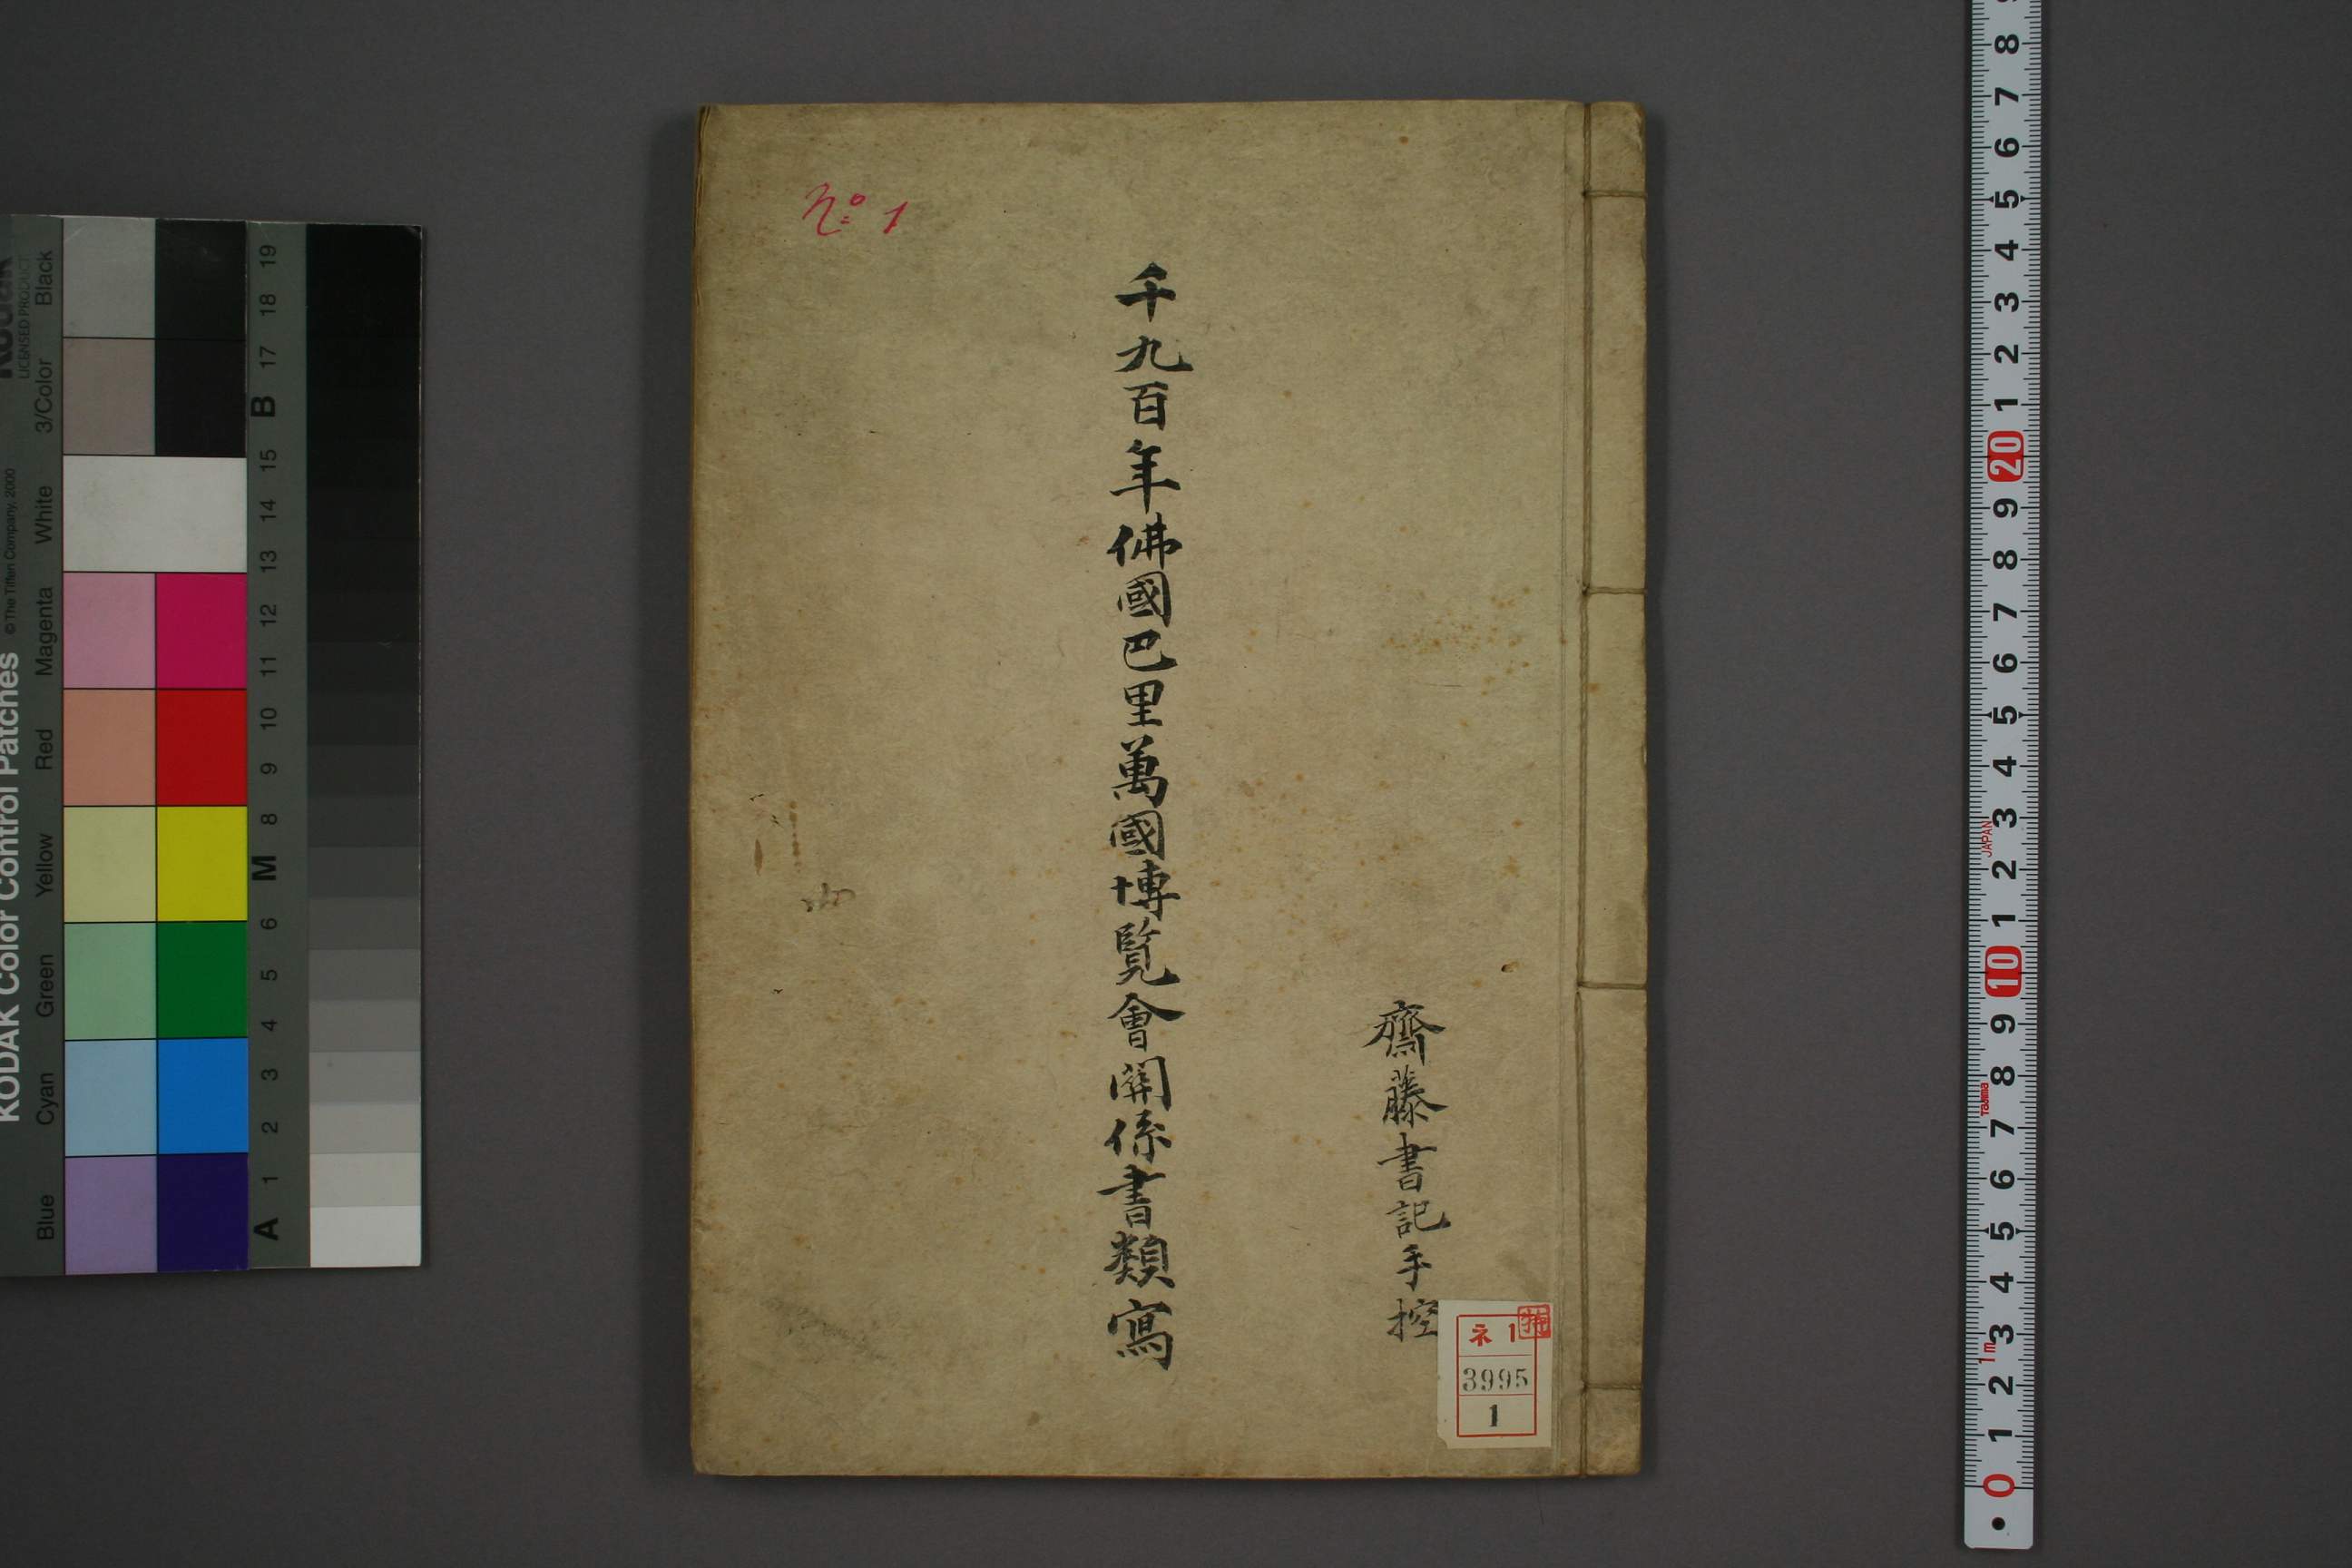 齋藤書記手控
千九百年佛國巴里萬國博覧會關係書類寫
No 1
特
ネ1
3995
1
KODAK Color Control Patches
Kodak
LICENSED PRODUCT
© The Tiffen Company, 2000
Blue Cyan Green Yellow Red Magenta White 3/Color Black
A 1 2 3 4 5 6 M 8 9 10 11 12 13 14 15 B 17 18 19
8 7 6 5 4 3 2 1 20 9 8 7 6 5 4 3 2 1 10 9 8 7 6 5 4 3 2 1 0
JAPAN
Tajima
1m